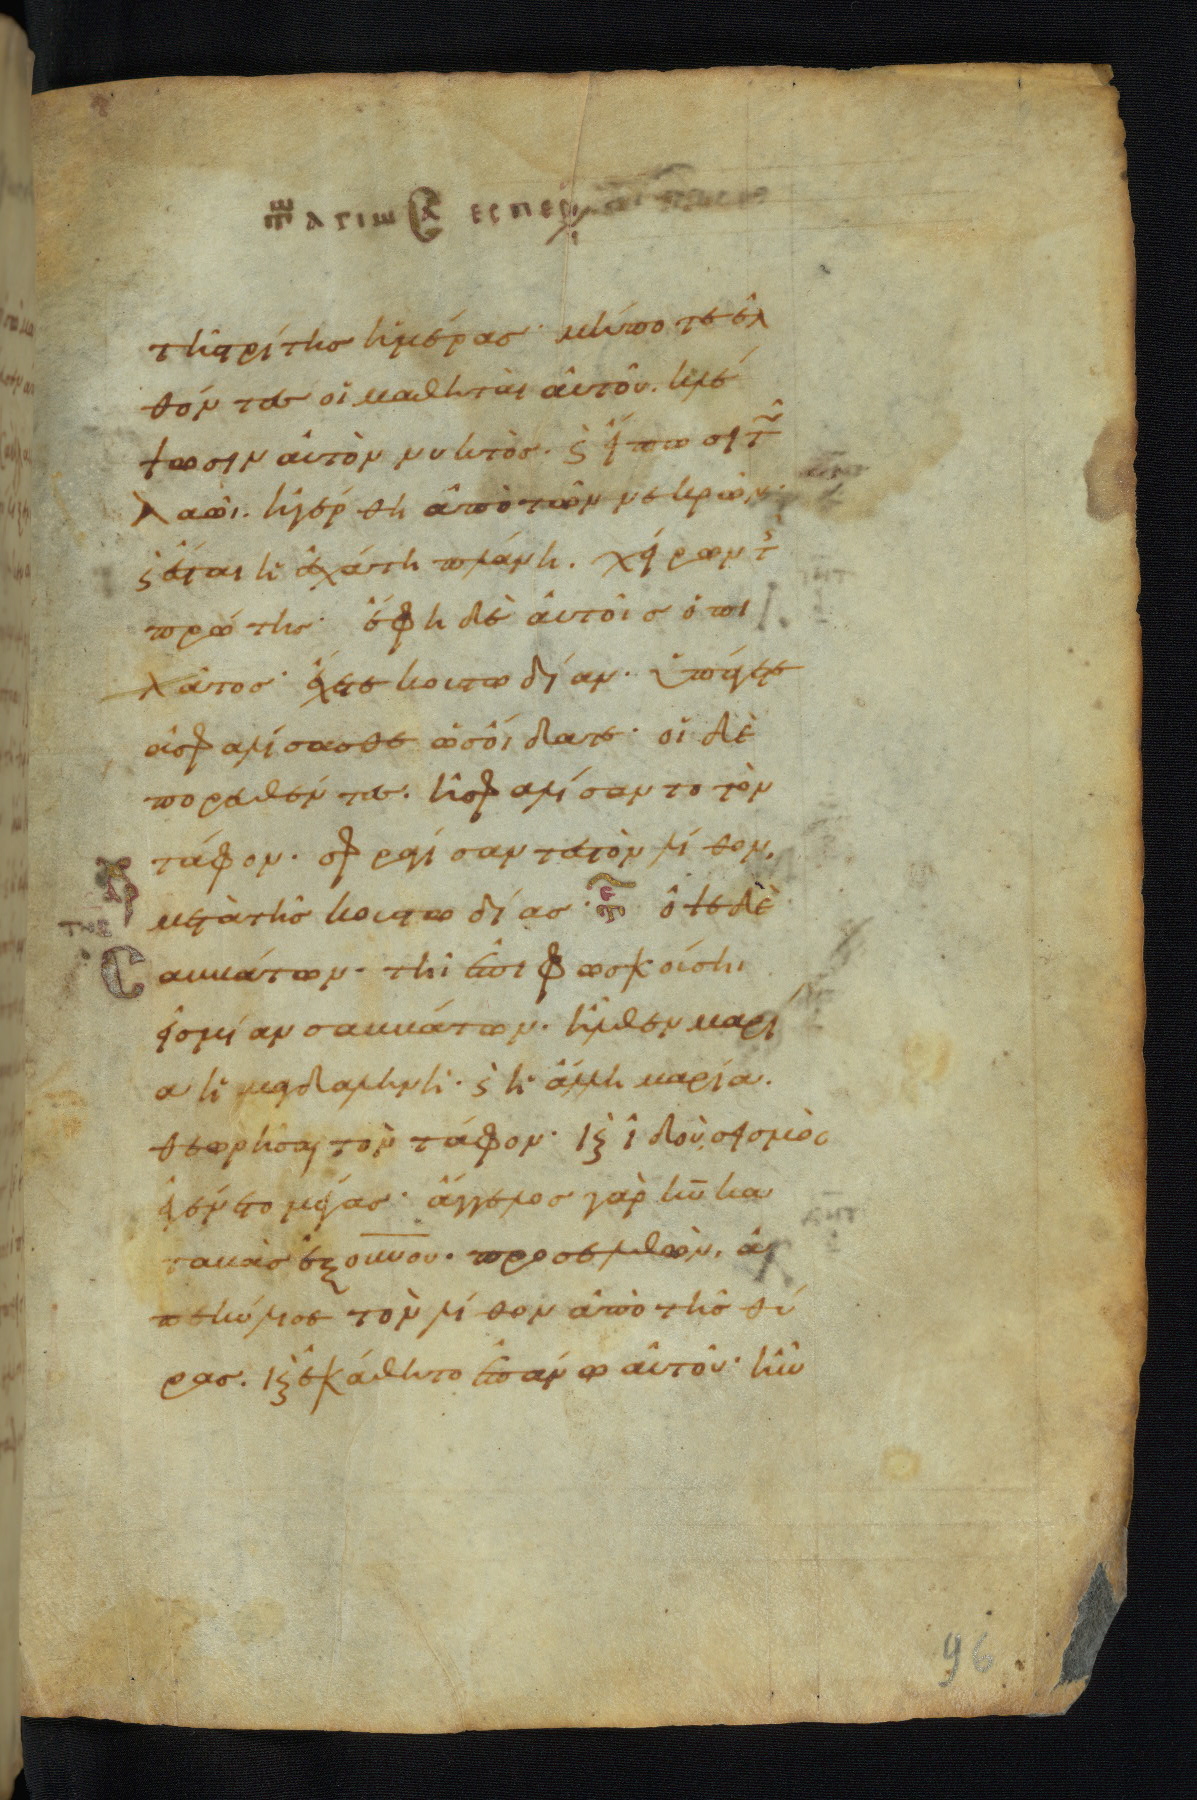 τῆς τρίτης ἡμέρας· μήποτε ἐλ
θόντες οἱ μαθηταὶ αὐτοῦ. κλέ
ψωσιν αὐτὸν νυκτὸς· ϛ εἴπωσι τῶ
λαῶι. ἠγέρθη ἀπὸ τῶν νεκρῶν·
ϛ ἔσται ἡ ἐσχάτη πλάνη. χείρων τῆς
πρώτης· ἔφη δὲ αὐτοῖς ὁ πι
λᾶτος· ἔχετε κουστωδίαν· ὑπάγετε
ἀσφαλίσασθε ὡς οἴδατε· οἱ δὲ
πορευθέντες. ἠσφαλίσαντο τὸν
τάφον· σφραγίσαντες τὸν λίθον,
μετὰ τῆς κουστωδίας· ὀψε δὲ
Σαββάτων· τῆι ἐπιφωσκούσηι
εἰς μίαν σαββάτων. ἦλθεν μαρί
α ἡ μαγδαληνὴ· ϛ ἡ ἄλλη μαρία.
θεωρῆσαι τὸν τάφον· κϛ ἰδοὺ σεισμὸς
ἐγένετο μέγας· ἄγγελος γὰρ κ̅υ̅ κα
ταβὰς ἐξ ο̅υ̅ν̅ο̅υ̅. προσελθὼν, ἀ
πεκύλισε τὸν λίθον ἀπὸ τῆς θύ
ρας. κϛ ἐκάθητο ἐπάνω αὐτοῦ· ἦν
96